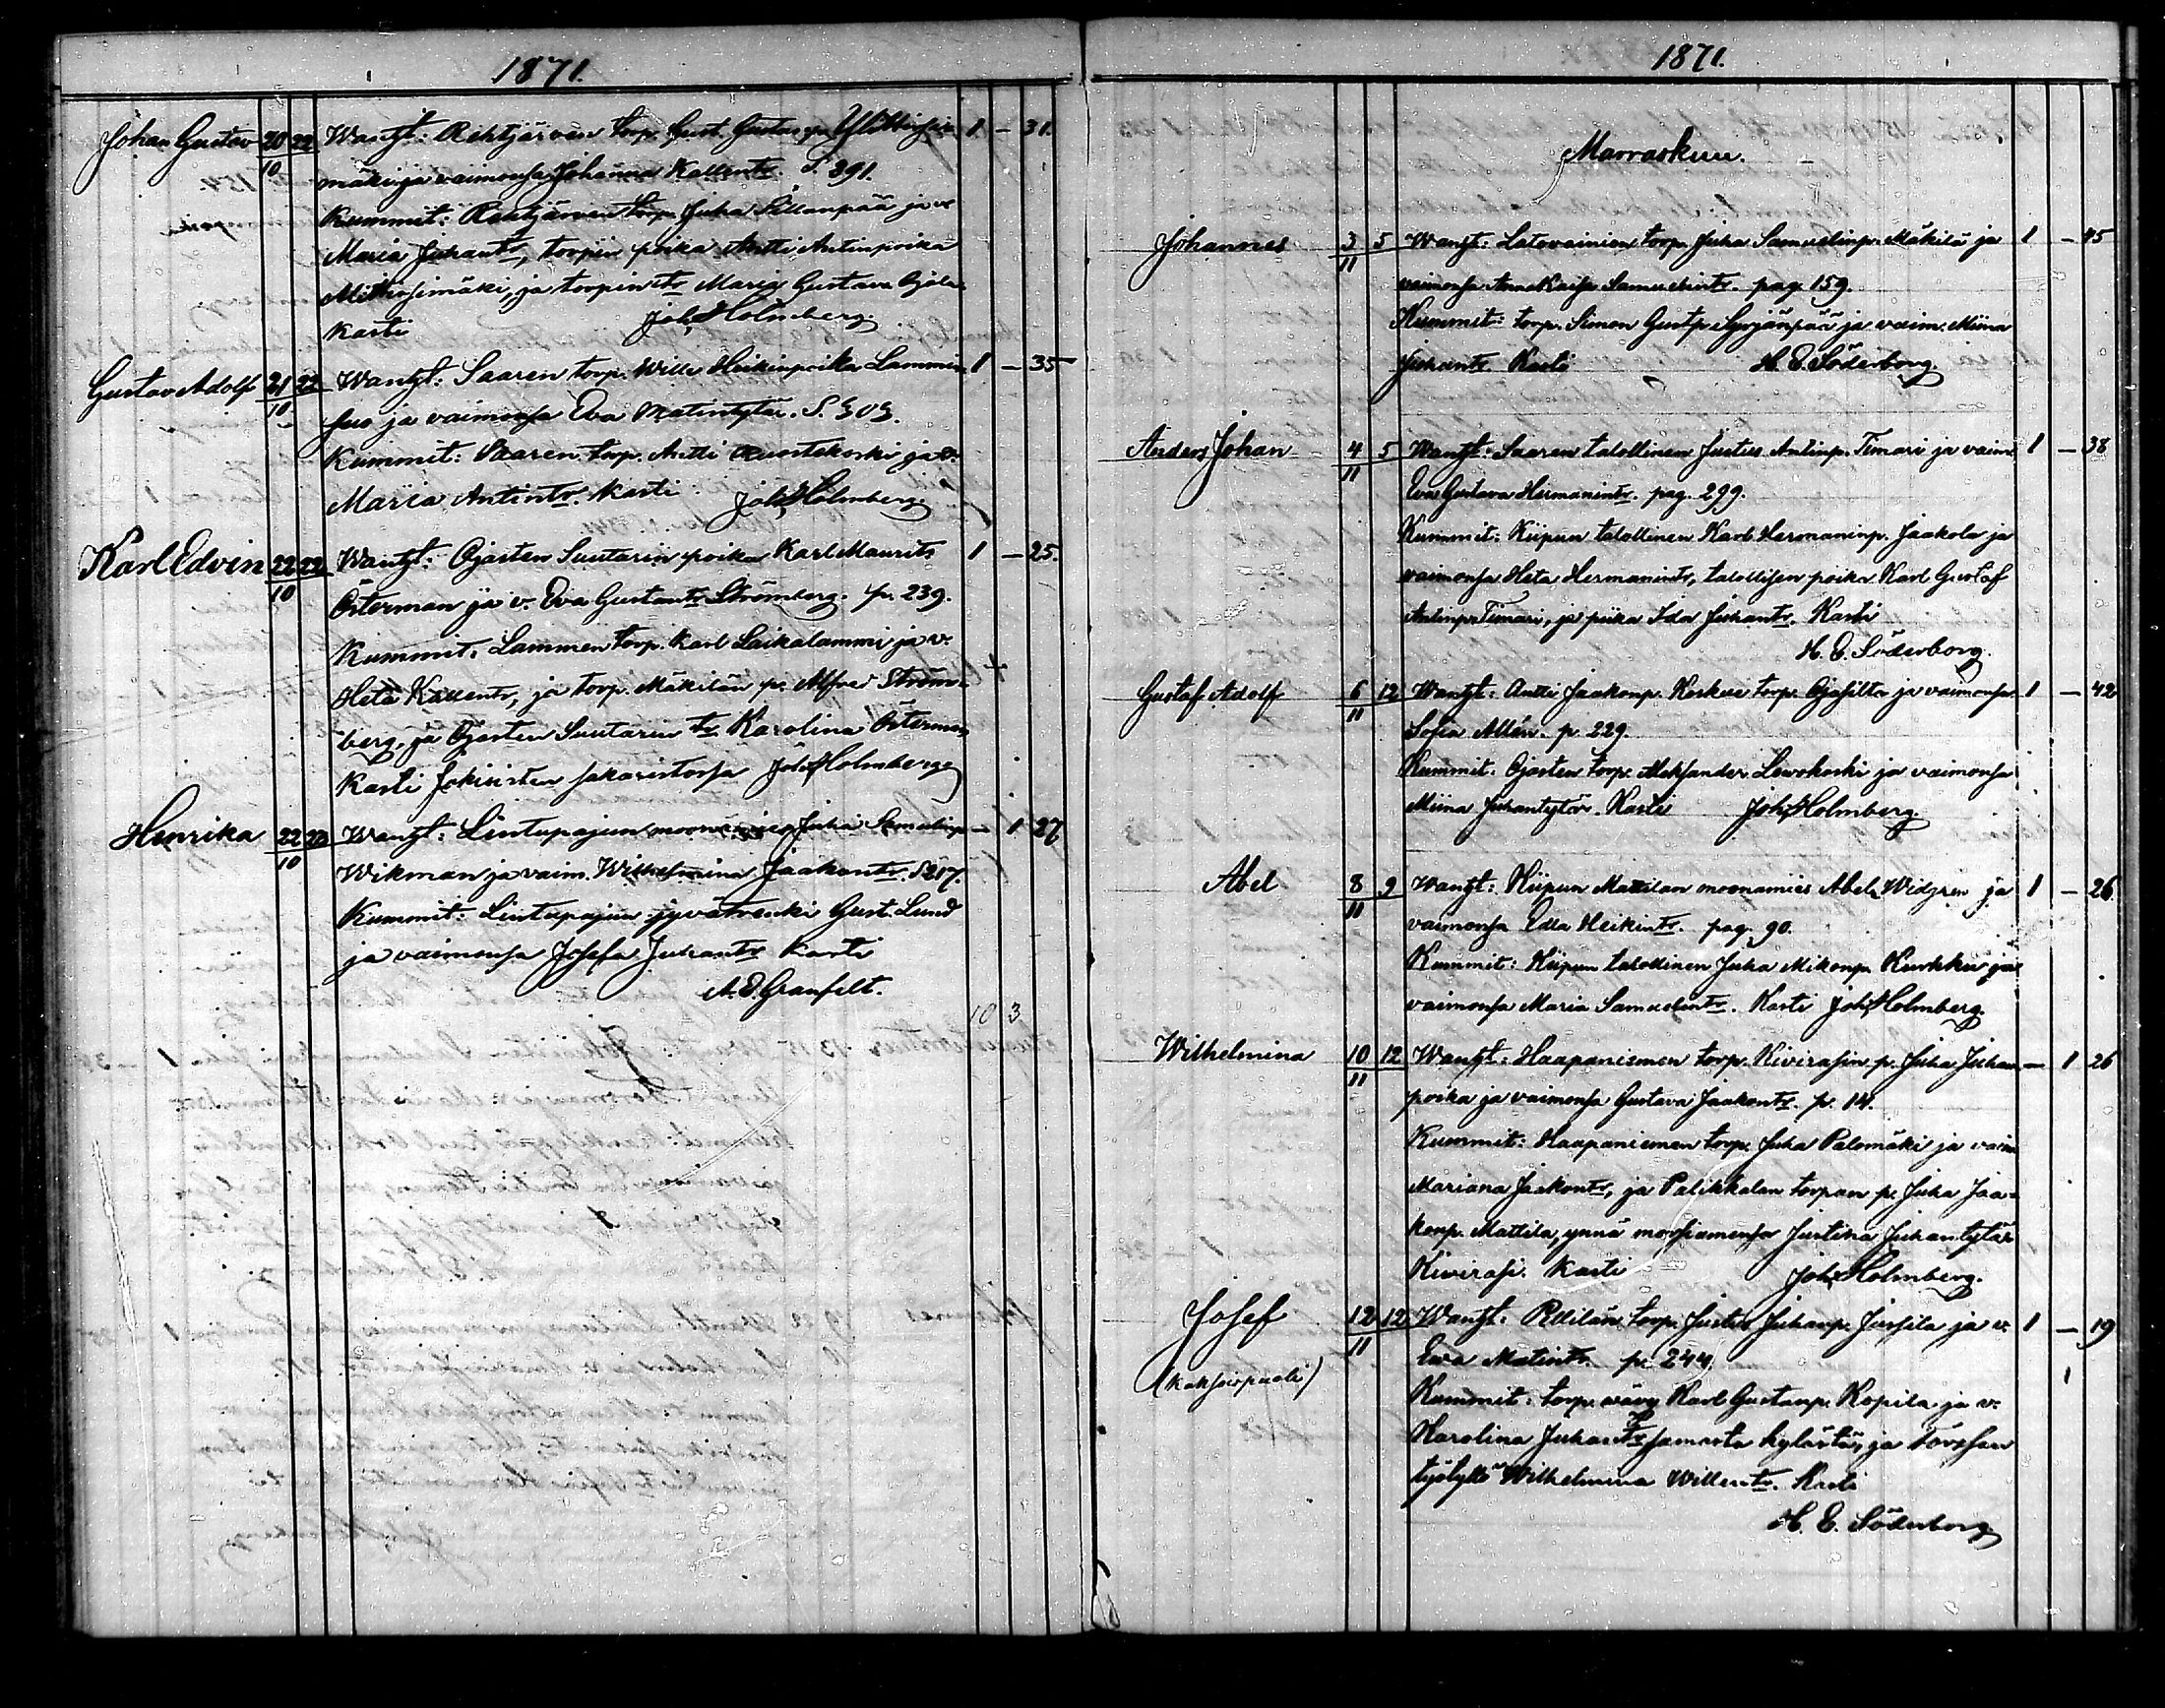 1871.
Johan Gustav 20/10 22 Wanht: Rehtjärven torp. Gust. Gustavp.
mäki ja vaimonsa Johanna Kallentr. S. 391.
Kummit: Rehtjärven torp. Juha Sillanpää ja v.
Maria Juhantr, torpin poika Antti Antinpoika
ja torpin tr Maria Gustava Ojala
Kasti Joh. Holmberg.
1 – 31.
Gustav Adolf 21/10 22 Wanht: Saaren torp. Wille Heikinpoika Lammin- 1 – 35
suo ja vaimonsa Eva Matintytär. S. 303.
Kummit: Saaren torp. Antti Kuortekoski ja v.
Maria Antintr. Kasti Joh. Holmberg.
Karl Edvin 22/10 22 Wanht: Ojasten Suutarin poika Karl Maurits 1 – 25.
Österman ja v. Eva Gustavtr Strömberg. p. 239.
Kummit. Lammen torp. Karl Laikalammi ja v.
Heta Kallentr, ja torp. Mäkilän p. Alfred Ström-
berg, ja Ojasten Suutarin tr Karolina Österman
Kasti Jokioisten sakaristossa Joh. Holmberg
Henrika 22/10 23 Wanht: Lintupajun moonamies Juha Samulinp – 1 27
Wikman ja vaim. Wilhelmina Jaakontr. S 217.
Kummit: Lintupajun jyvätrenki Gust. Lund
ja vaimonsa Josefa Juhantr Kasti
A. E. Granfelt.
10 3
1871.
Marraskuu.
Johannes 3/11 5 Wanht: Latovainion torp. Juha Samuelinp. Mäkilä ja 1 – 45
vaimonsa Anna Kaisa Samuelintr. pag. 159.
Kummit: torp. Simon Gustp. ja vaim. Miina
Juhantr. Kasti H. E. Söderborg.
Anders Johan 4/11 5 Wanht: Saaren talollinen Justus Antinp. Timari ja vaim. 1 – 38
Eva Gustava Hermanintr. pag. 299.
Kummit: Kiipun talollinen Karl Hermaninp. Jaakola ja
vaimonsa Heta Hermanintr, talollisen poika Karl Gustaf
Antinp. Timari, ja piika Ida Juhantr. Kasti
H. E. Söderborg.
Gustaf Adolf 6/11 12 Wanht: Antti Jaakonp. Kosken torp. Ojasilta ja vaimonsa 1 – 42
Sofia Allén. p. 229.
Kummit. Ojasten torp. Aleksander Lewokoski ja vaimonsa
Miina Juhantytär. Kasti Joh. Holmberg.
Abel 8/11 9 Wanht: Kiipun Mattilan moonamies Abel Widgren ja 1 – 26.
vaimonsa Edla Heikintr. pag. 90.
Kummit: Kiipun talollinen Juha Mikonp. Kurkku ja
vaimonsa Maria Samuelintr. Kasti Joh. Holmberg.
Wilhelmina 10/11 12 Wanht: Haapaniemen torp. Kivirasin p. Juha Juhan- – 1 26
poika ja vaimonsa Gustava Jaakontr. p. 14.
Kummit: Haapaniemen torp. Juha Palomäki ja vaim
Mariana Jaakontr, ja Palikkalan torpan p. Juha Jaa-
konp. Mattila, ynnä morsiamensa Justina Juhantytär
Kivirasi. Kasti Joh. Holmberg.
Josef 12/11 12 Wanht: torp. Justus Juhanp. Jussila ja v. 1 – 19
(kaksoispuoli) Eva Matintr. p. 244.
1
Kummit: torp. vävy Karl Gustavp. Kopila ja v.
Karolina Juhantr samasta kylästä, ja Torpan
työtyttö Wilhelmina Willentr. Kasti
H. E. Söderborg